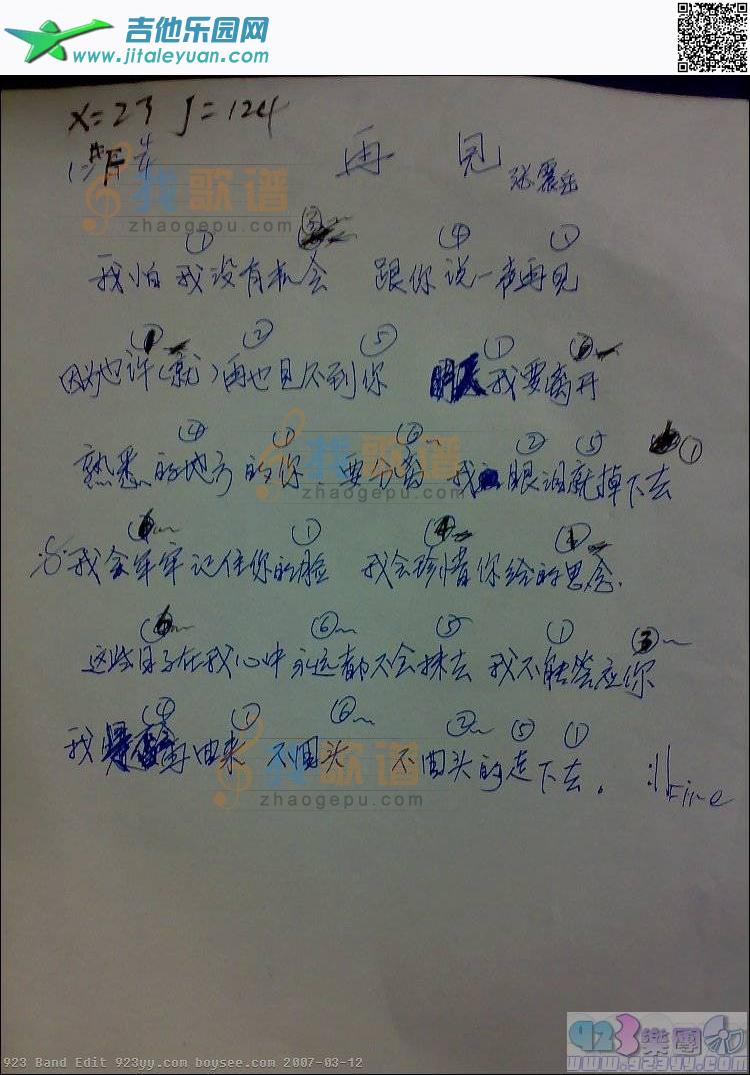 吉他乐园网
www.jitaleyuan.com
X=23 J=124
1=#F 4/4
再 见
张震岳
找歌谱
zhaogepu.com
① ③ ④ ①
我怕 我没有机会 跟你说一声再见
① ② ⑤ ①
因为也许(就)再也见不到你 明天我要离开
④ ① ⑥~ ② ⑤ ①
熟悉的地方的你 要分离 我 眼泪就掉下去
找歌谱
zhaogepu.com
①
:S: 我会牢牢记住你的脸 我会珍惜你给的思念.
⑥~ ⑤ ① ③~
这些日子在我心中永远都不会抹去 我不能答应你
④ ① ⑥~ ②~ ⑤ ①
我 再回来 不回头 不回头的走下去。 :|| Fine
找歌谱
zhaogepu.com
923 Band Edit 923yy.com boysee.com 2007-03-12
923樂團
www.923yy.com